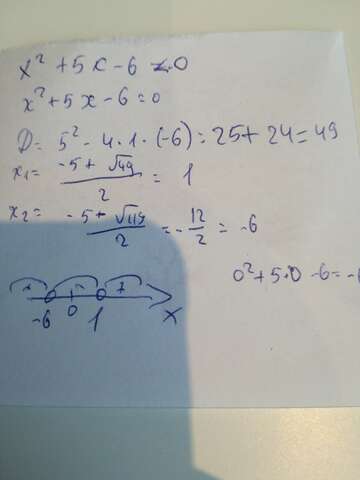 x² + 5x - 6 < 0
x² + 5x - 6 = 0
D = 5² - 4 · 1 · (-6) = 25 + 24 = 49
x₁ = (-5 + √49)/2 = 1
x₂ = (-5 + √49)/2 = -12/2 = -6
0² + 5 · 0 - 6 = -
+ - +
-6 0 1 x